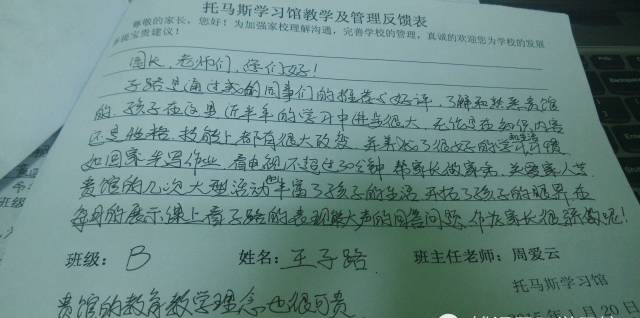 托马斯学习馆教学及管理反馈表
尊敬的家长，您好！为加强家校理解沟通，完善学校的管理，真诚的欢迎您为学校的发展
宝贵建议！
园长，老师们，您们好！
子路是通过我的同事们的推荐与好评，了解和熟悉贵馆
的，孩子在这里近半年的学习中进步很大，无论是在知识内容
还是性格，技能上都有很大改变，并养成了很好的学习习惯
如回家先写作业，看电视不超过30分钟，帮家长做家务，关爱家人等
贵馆的几次大型活动丰富了孩子的生活，开拓了孩子的眼界，在
每月的展示课上看子路的表现能大声的回答问题，作为家长很骄傲呢！
班级：B 姓名：王子路 班主任老师：周爱云
托马斯学习馆
月20日
贵馆的教育教学理念也很可贵